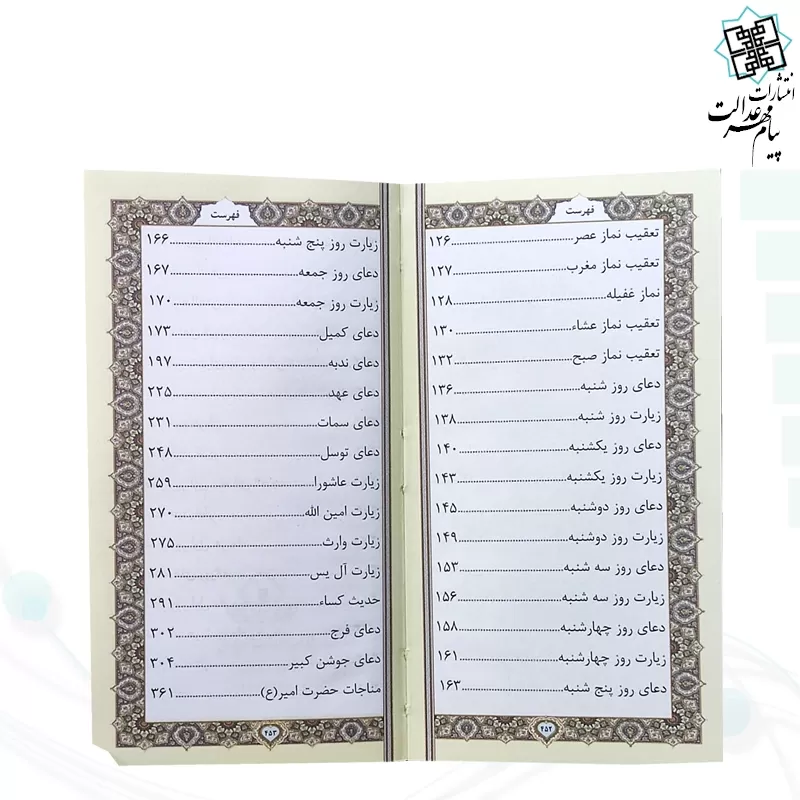 انتشارات
پیام مهر عدالت
فهرست
تعقیب نماز عصر..............................۱۲۶
تعقیب نماز مغرب..............................۱۲۷
نماز غفیله..............................۱۲۸
تعقیب نماز عشاء..............................۱۳۰
تعقیب نماز صبح..............................۱۳۲
دعای روز شنبه..............................۱۳۶
زیارت روز شنبه..............................۱۳۸
دعای روز یکشنبه..............................۱۴۰
زیارت روز یکشنبه..............................۱۴۳
دعای روز دوشنبه..............................۱۴۵
زیارت روز دوشنبه..............................۱۴۹
دعای روز سه شنبه..............................۱۵۳
زیارت روز سه شنبه..............................۱۵۶
دعای روز چهارشنبه..............................۱۵۸
زیارت روز چهارشنبه..............................۱۶۱
دعای روز پنج شنبه..............................۱۶۳
۴۵۲
فهرست
زیارت روز پنج شنبه..............................۱۶۶
دعای روز جمعه..............................۱۶۷
زیارت روز جمعه..............................۱۷۰
دعای کمیل..............................۱۷۳
دعای ندبه..............................۱۹۷
دعای عهد..............................۲۲۵
دعای سمات..............................۲۳۱
دعای توسل..............................۲۴۸
زیارت عاشورا..............................۲۵۹
زیارت امین الله..............................۲۷۰
زیارت وارث..............................۲۷۵
زیارت آل یس..............................۲۸۱
حدیث کساء..............................۲۹۱
دعای فرج..............................۳۰۲
دعای جوشن کبیر..............................۳۰۴
مناجات حضرت امیر(ع)..............................۳۶۱
۴۵۳